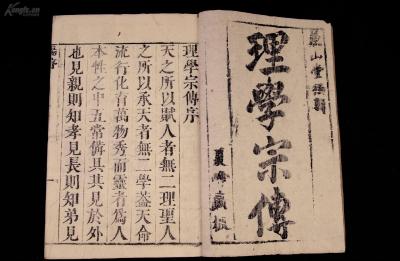 理學宗傳
藏板
理學宗傳序
天之所以賦人者無二理聖人
之所以承天者無二學蓋天命
流行化育萬物秀而靈者為人
本性之中五常備具其見於外
也見親則知孝見長則知弟見